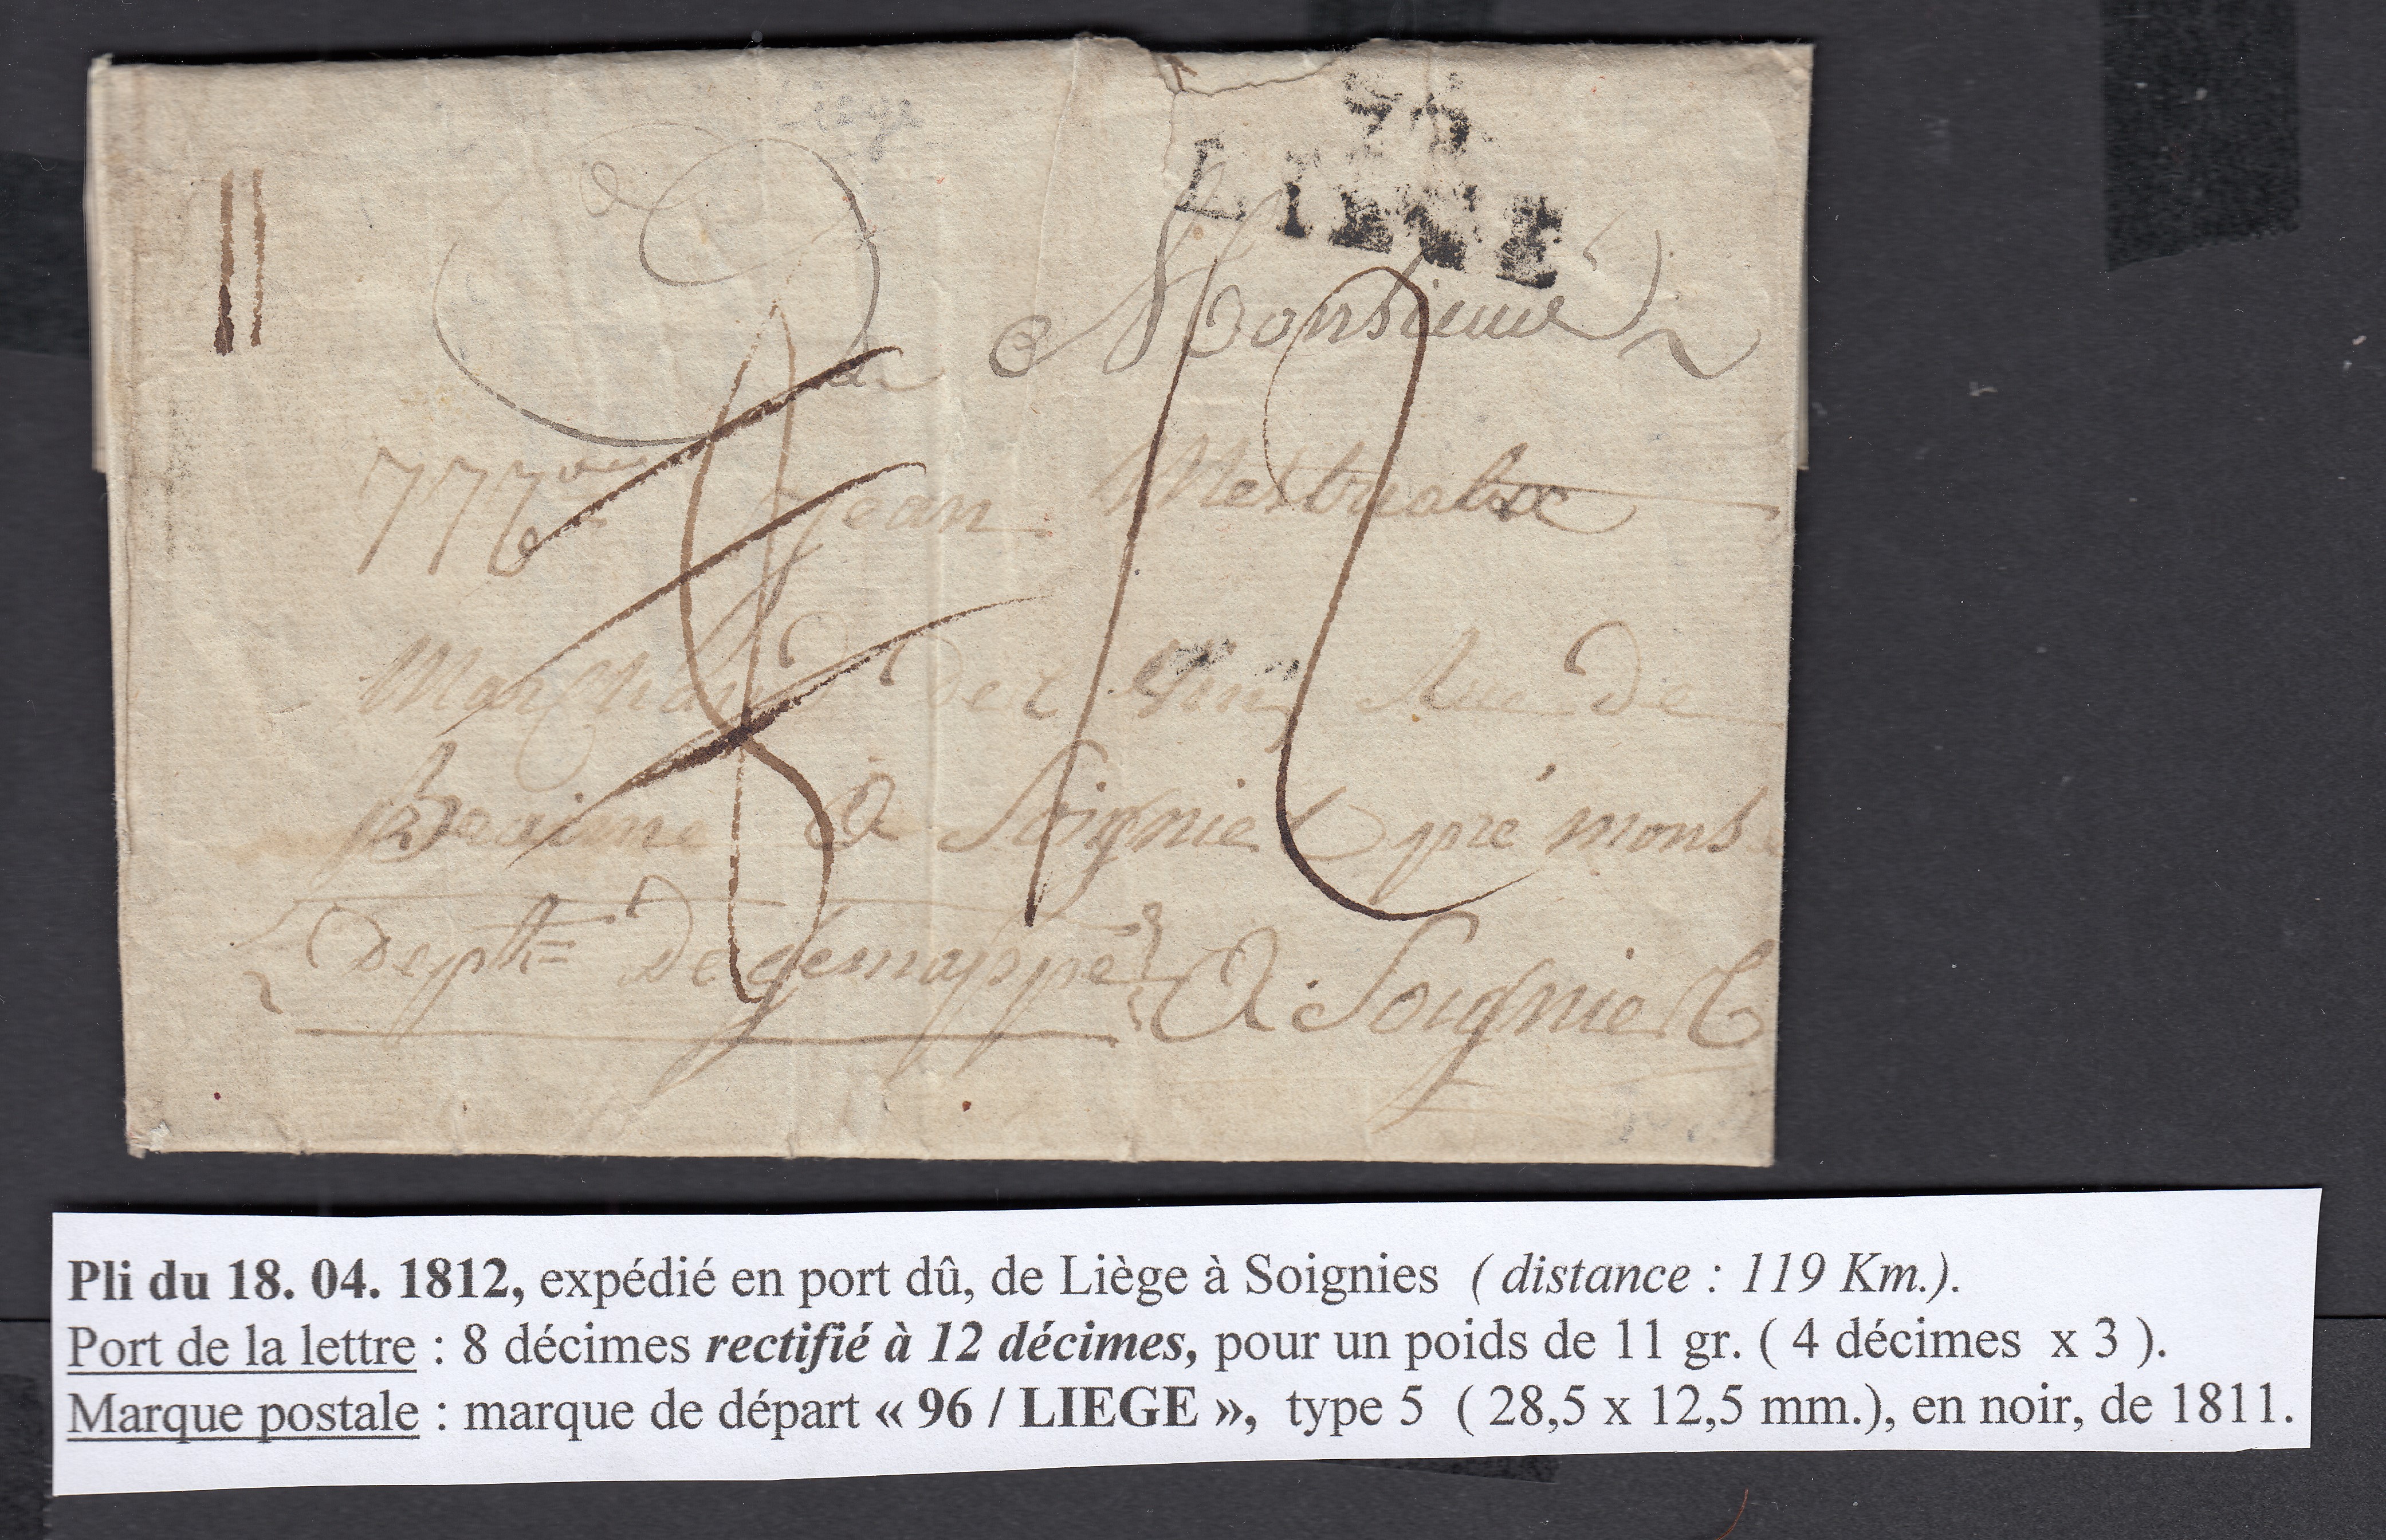 Liege
96
LIEGE
11
A Monsieur
Jean
8 12
Marchand de Rue de
Braine A Soignies pré mons
Deptt= De gemappe A Soignies
Pli du 18. 04. 1812, expédié en port dû, de Liège à Soignies ( distance : 119 Km.).
Port de la lettre : 8 décimes rectifié à 12 décimes, pour un poids de 11 gr. ( 4 décimes x 3 ).
Marque postale : marque de départ « 96 / LIEGE », type 5 ( 28,5 x 12,5 mm.), en noir, de 1811.